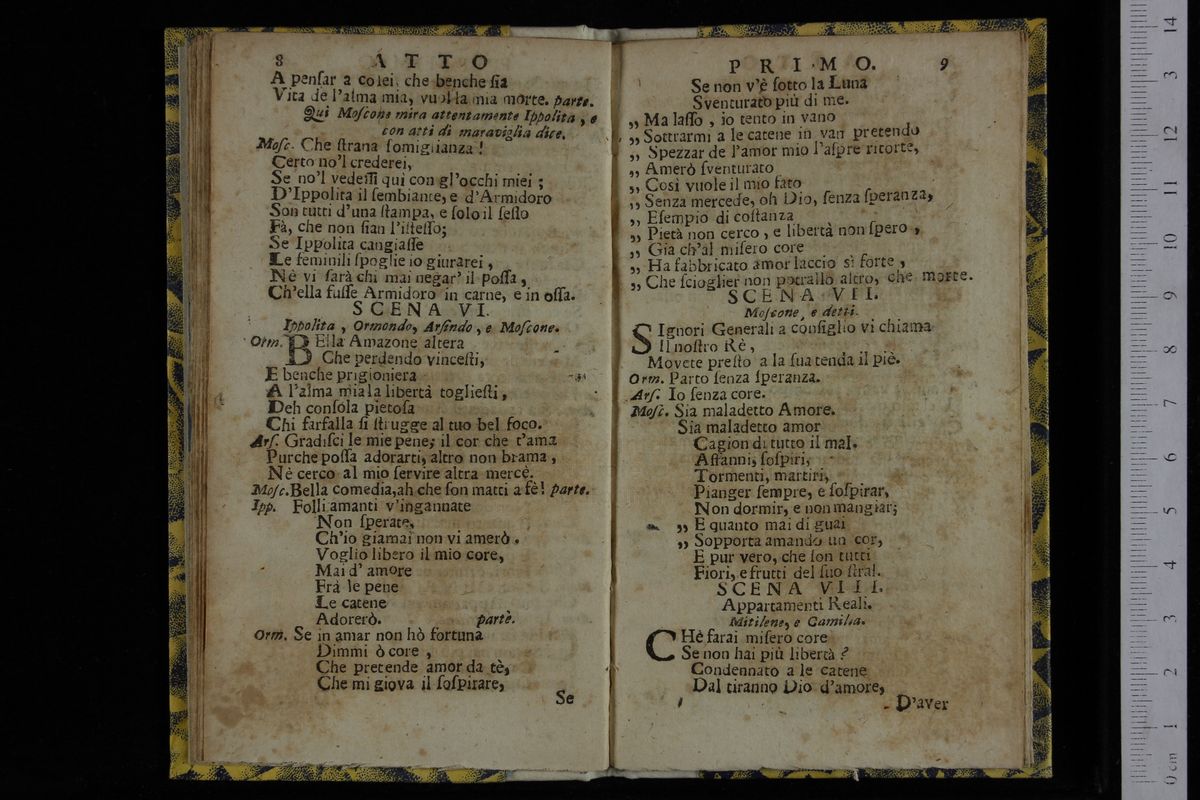 8 ATTO
A penſar a colei, che benche ſia
Vita de l'alma mia, vuol la mia morte. parte.
Qui Moſcone mira attentamente Ippolita, e
con atti di maraviglia dice.
Moſc. Che ſtrana ſomiglianza!
Certo no'l crederei,
Se no'l vedeſſi qui con gl'occhi miei;
D'Ippolita il ſembiante, e d'Armidoro
Son tutti d'una ſtampa, e ſolo il ſeſſo
Fà, che non ſian l'iſteſſo;
Se Ippolita cangiaſſe
Le feminili ſpoglie io giurarei,
Nè vi ſarà chi mai negar' il poſſa,
Ch'ella fuſſe Armidoro in carne, e in oſſa.
SCENA VI.
Ippolita, Ormondo, Arſindo, e Moſcone.
Orm. BElla Amazone altera
Che perdendo vinceſti,
E benche prigioniera
A l'alma mia la libertà toglieſti,
Deh conſola pietoſa
Chi farfalla ſi ſtrugge al tuo bel foco.
Arſ. Gradiſci le mie pene; il cor che t'ama
Purche poſſa adorarti, altro non brama,
Nè cerco al mio ſervire altra mercè.
Moſc. Bella comedia, ah che ſon matti a fè! parte.
Ipp. Folli amanti v'ingannate
Non ſperate,
Ch'io giamai non vi amerò.
Voglio libero il mio core,
Mai d' amore
Frà le pene
Le catene
Adorerò. parte.
Orm. Se in amar non hò fortuna
Dimmi ò core,
Che pretende amor da tè,
Che mi giova il ſoſpirare,
Se
PRIMO. 9
Se non v'è ſotto la Luna
Sventurato più di me.
„ Ma laſſo, io tento in vano
„ Sottrarmi a le catene in van pretendo
„ Spezzar de l'amor mio l'aſpre ritorte,
„ Amerò ſventurato
„ Così vuole il mio fato
„ Senza mercede, oh Dio, ſenza ſperanza,
„ Eſempio di coſtanza
„ Pietà non cerco, e libertà non ſpero,
„ Gia ch'al miſero core
„ Ha fabbricato amor laccio sì forte,
„ Che ſcioglier non potrallo altro, che morte.
SCENA VII.
Moſcone, e detti.
SIgnori Generali a conſiglio vi chiama
Il noſtro Rè,
Movete preſto a la ſua tenda il piè.
Orm. Parto ſenza ſperanza.
Arſ. Io ſenza core.
Moſc. Sia maladetto Amore.
Sia maladetto amor
Cagion di tutto il mal.
Affanni, ſoſpiri,
Tormenti, martiri,
Pianger ſempre, e ſoſpirar,
Non dormir, e non mangiar;
„ E quanto mai di guai
„ Sopporta amando un cor,
E pur vero, che ſon tutti
Fiori, e frutti del ſuo ſtral.
SCENA VIII.
Appartamenti Reali.
Mitilene, e Camilla.
CHè farai miſero core
Se non hai più libertà?
Condennato a le catene
Dal tiranno Dio d'amore,
D'aver
14
13
12
11
10
9
8
7
6
5
4
3
2
1
0 cm